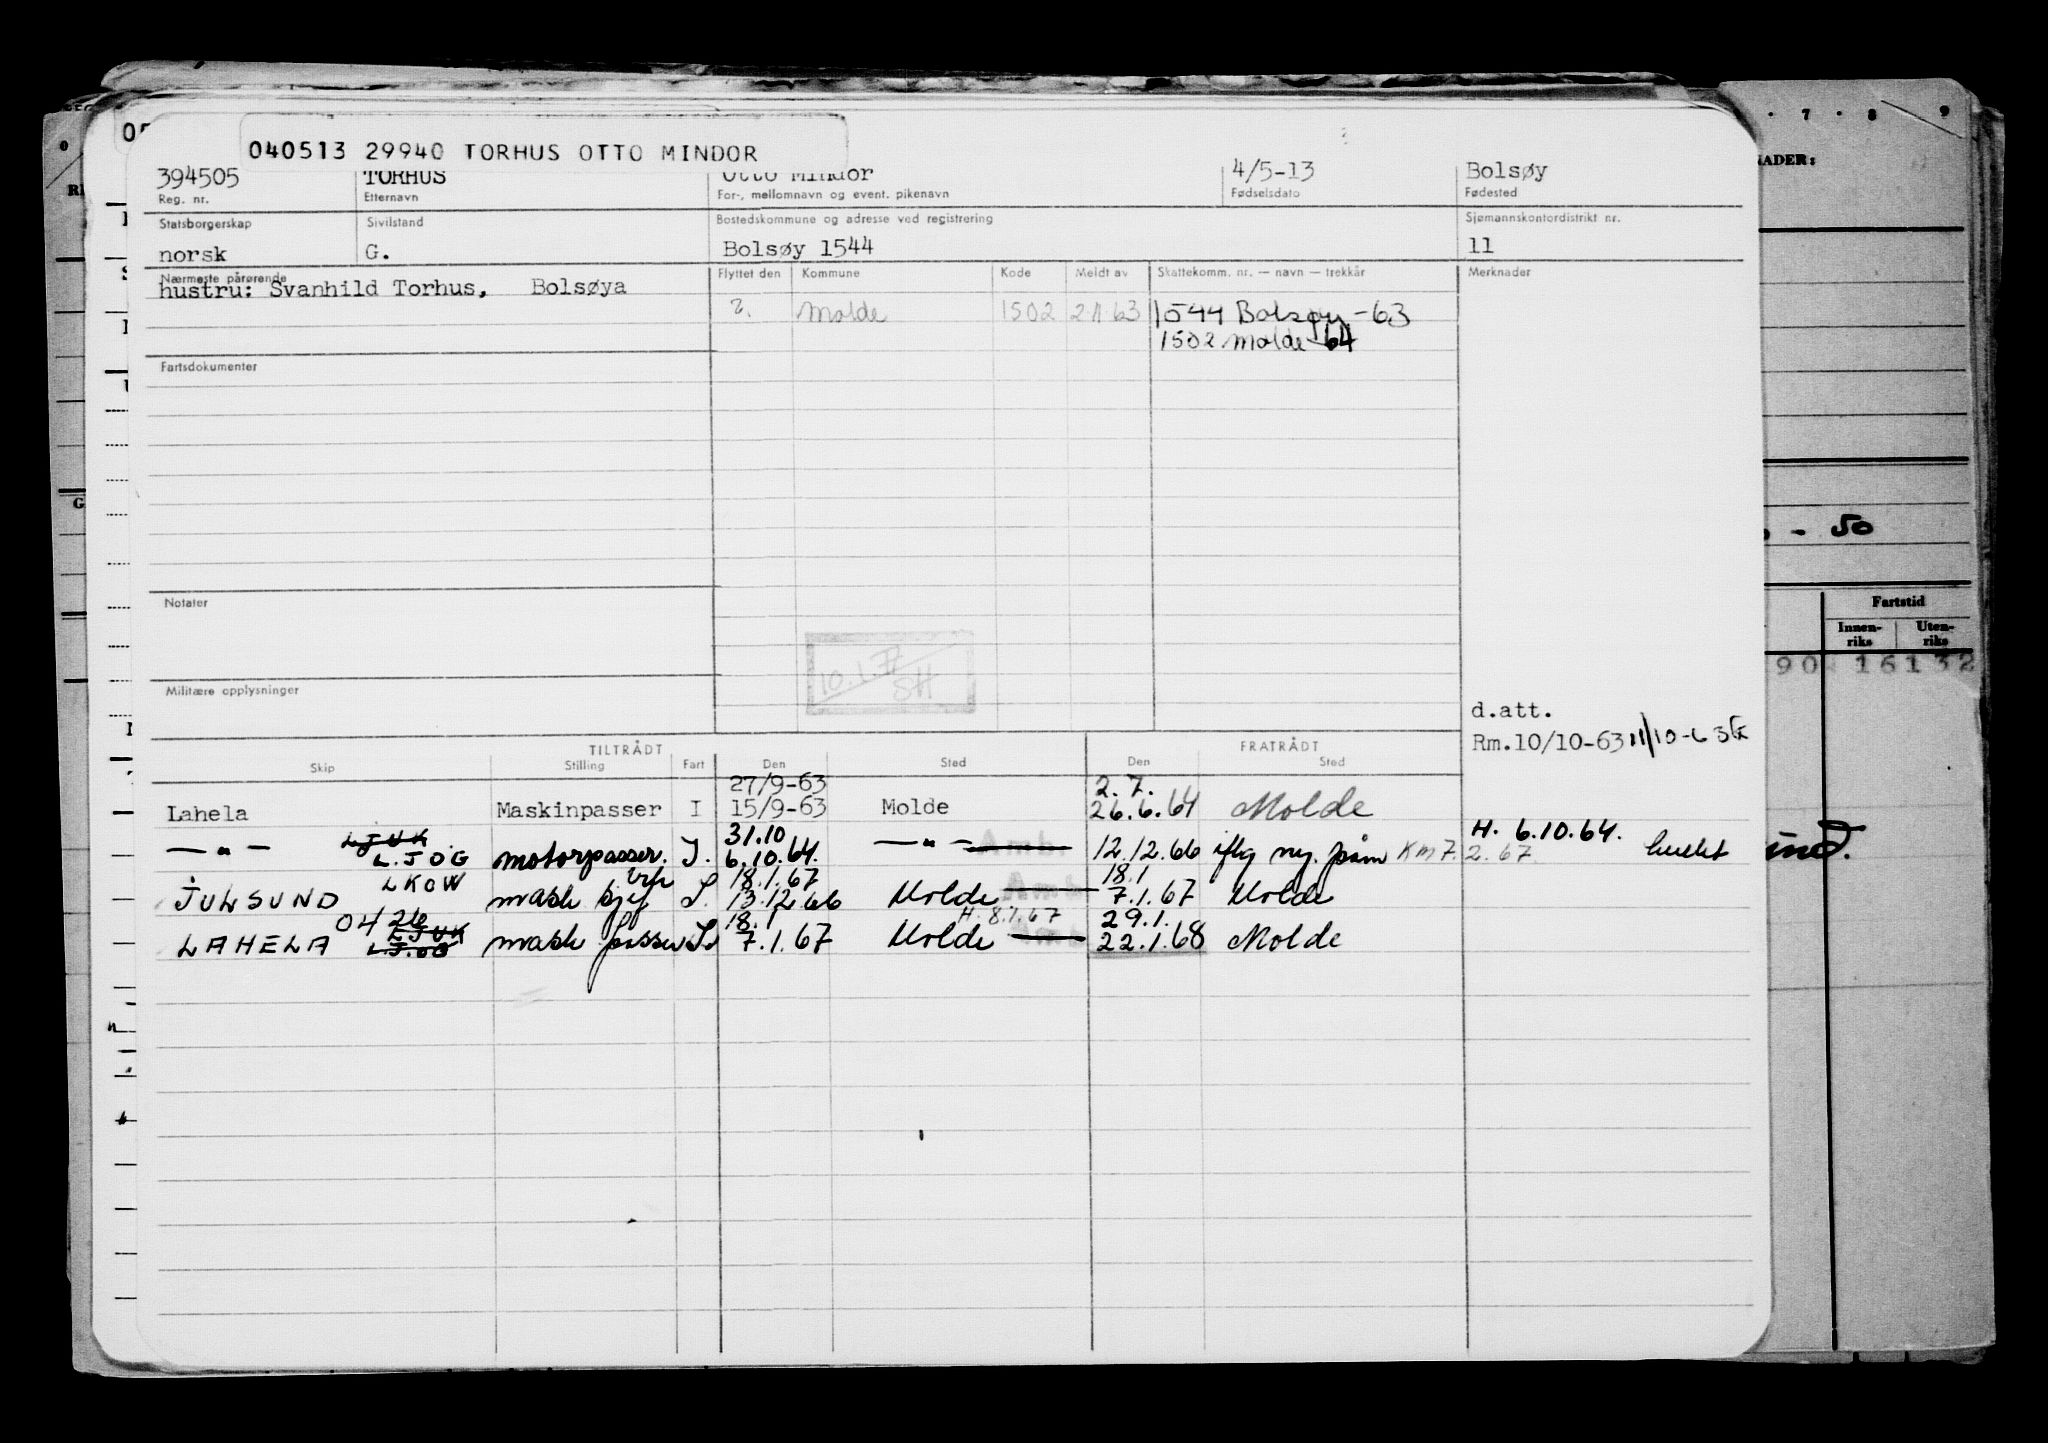 040513 29940 TORHUS OTTO MINDOR
394505 TORHUS Otto Mindor 4/5-13 Bolsøy
Reg. nr. Etternavn For-, mellomnavn og event. pikenavn Fødselsdato Fødested
Statsborgerskap Sivilstand Bostedskommune og adresse ved registrering Sjømannskontordistrikt nr.
norsk G. Bolsøy 1544 11
Nærmeste pårørende Flyttet den Kommune Kode Meldt av Skattekomm. nr. — navn — trekkår Merknader
hustru: Svanhild Torhus, Bolsøya
?. Molde 1502 2.11.63 1544 Bolsøy -63
1502 Molde 64
Fartsdokumenter
Notater
10.1.
SH
Militære opplysninger
d.att.
Rm.10/10-63 11/10-63
TILTRÅDT FRATRÅDT
Skip Stilling Fart Den Sted Den Sted
27/9-63 2.7.
Lahela Maskinpasser I 15/9-63 Molde 26.6.64 Molde
LJUK 31.10 H. 6.10.64.
— " — LJOG motorpasser. I. 6.10.64. — " — Amb. 12.12.66 iflg ny. påm KM 7.2.67
LKOW 18.1.67 18.1
JULSUND mask sjef I. 13.12.66 Molde Amb 7.1.67 Molde
04 26 LJUK 18.1 H. 8.1.67 29.1.
LAHELA LJOG mask. passer I. 7.1.67 Molde Amb 22.1.68 Molde
7 8 9
NADER:
- 50
Fartstid
Innenriks Utenriks
90 16132
ind.